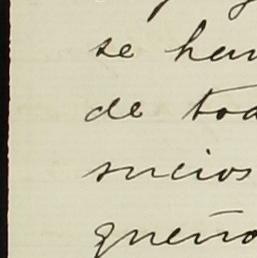 se han
de tod
sucios
queño